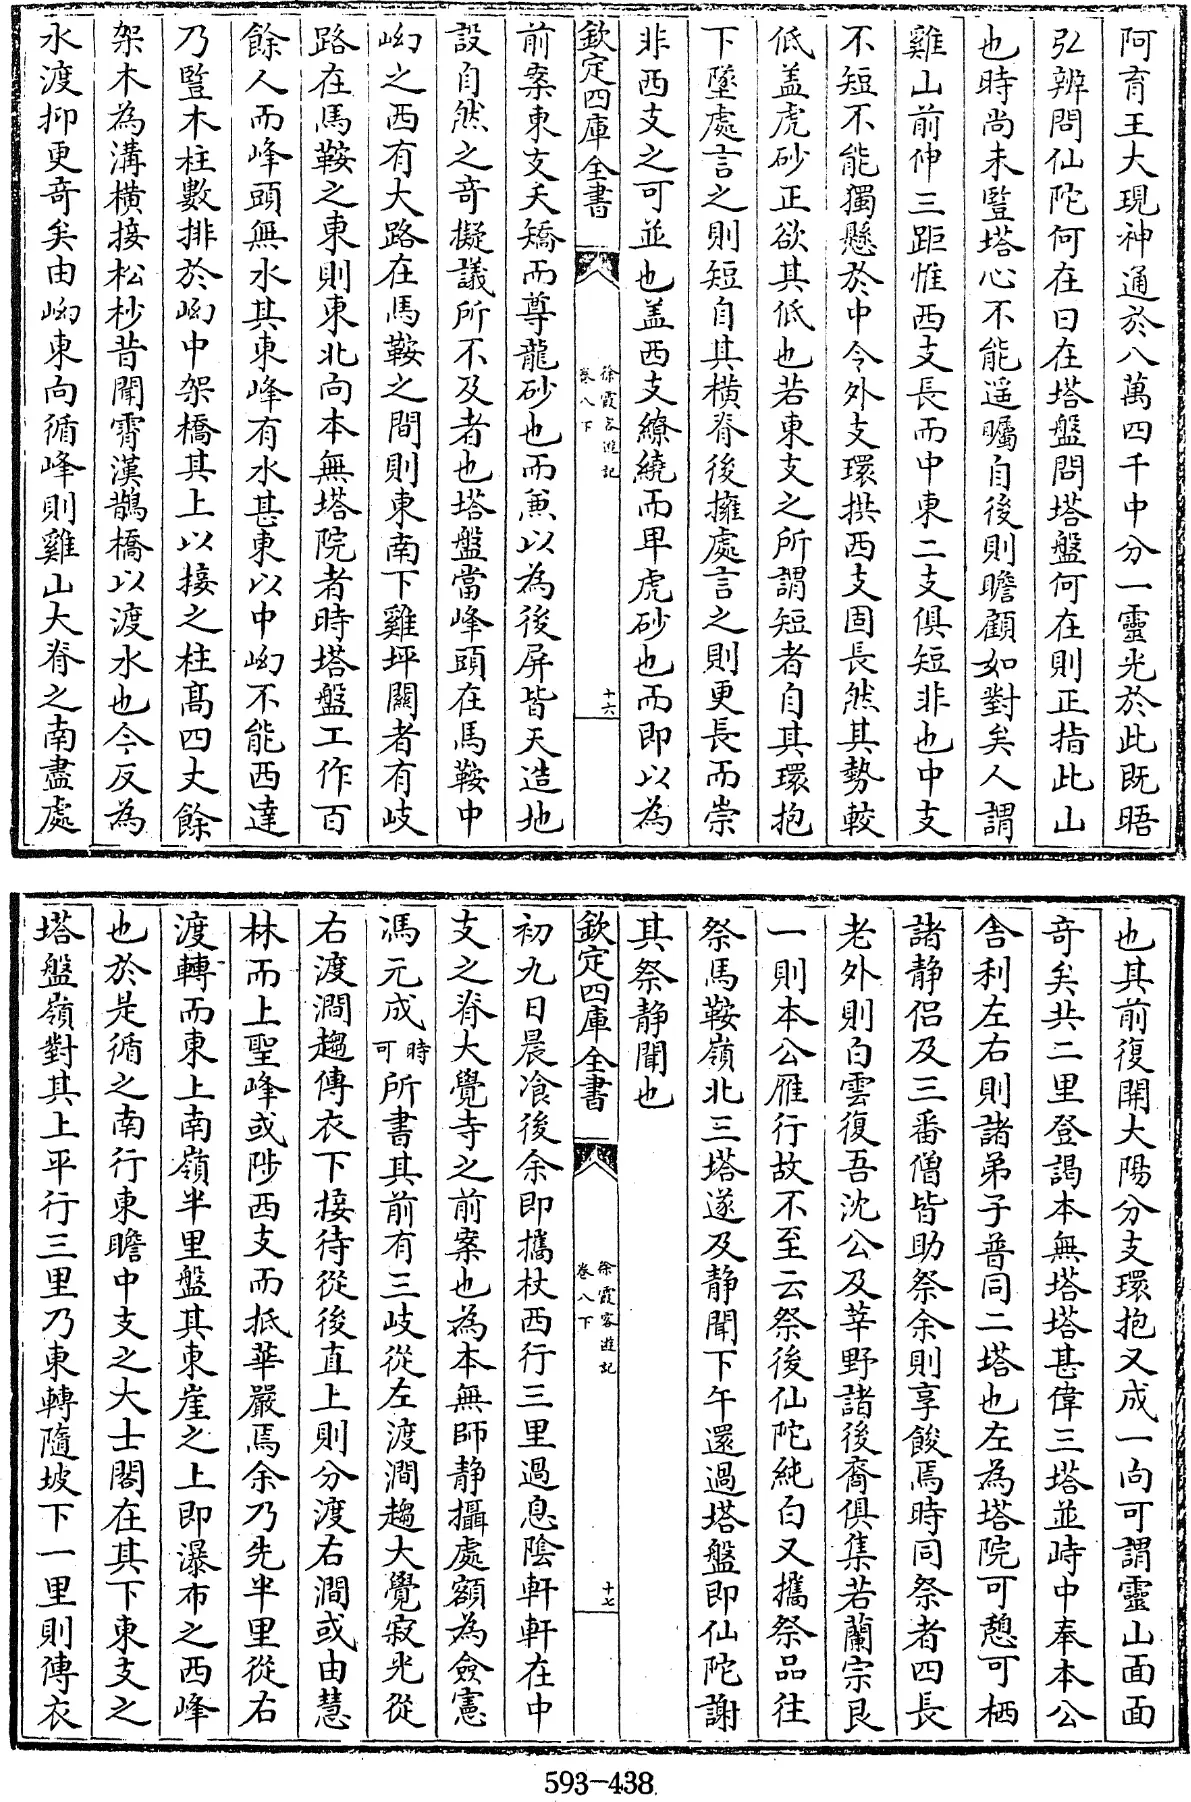 阿育王大現神通於八萬四千中分一靈光於此既晤
弘辨問仙陀何在曰在塔盤問塔盤何在則正指此山
也時尚未豎塔心不能遥矚自後則瞻顧如對矣人謂
雞山前伸三距惟西支長而中東二支俱短非也中支
不短不能獨懸於中令外支環拱西支固長然其勢較
低盖虎砂正欲其低也若東支之所謂短者自其環抱
下墜處言之則短自其横脊後擁處言之則更長而崇
非西支之可並也盖西支繚繞而卑虎砂也而即以為
欽定四庫全書
徐霞客遊記
卷八下
十六
前案東支夭矯而尊龍砂也而兼以為後屏皆天造地
設自然之竒擬議所不及者也塔盤當峰頭在馬鞍中
峋之西有大路在馬鞍之間則東南下雞坪關者有岐
路在馬鞍之東則東北向本無塔院者時塔盤工作百
餘人而峰頭無水其東峰有水甚東以中峋不能西達
乃豎木柱數排於峋中架橋其上以接之柱髙四丈餘
架木為溝横接松杪昔聞霄漢鵲橋以渡水也今反為
水渡抑更竒矣由峋東向循峰則雞山大脊之南盡處
也其前復開大陽分支環抱又成一向可謂靈山面面
竒矣共二里登謁本無塔塔甚偉三塔並峙中奉本公
舎利左右則諸弟子普同二塔也左為塔院可憩可栖
諸静侣及三番僧皆助祭余則享餕焉時同祭者四長
老外則白雲復吾沈公及莘野諸後裔俱集若蘭宗艮
一則本公雁行故不至云祭後仙陀純白又攜祭品往
祭馬鞍嶺北三塔遂及静聞下午還過塔盤即仙陀謝
其祭静聞也
欽定四庫全書
徐霞客遊記
卷八下
十七
初九日晨飡後余即攜杖西行三里過息陰軒軒在中
支之脊大覺寺之前案也為本無師静攝處額為僉憲
馮元成時可所書其前有三岐從左渡澗趨大覺寂光從
右渡澗趨傳衣下接待從後直上則分渡右澗或由慧
林而上聖峰或陟西支而抵華嚴焉余乃先半里從右
渡轉而東上南嶺半里盤其東崖之上即瀑布之西峰
也於是循之南行東瞻中支之大士閣在其下東支之
塔盤嶺對其上平行三里乃東轉隨坡下一里則傳衣
593-438